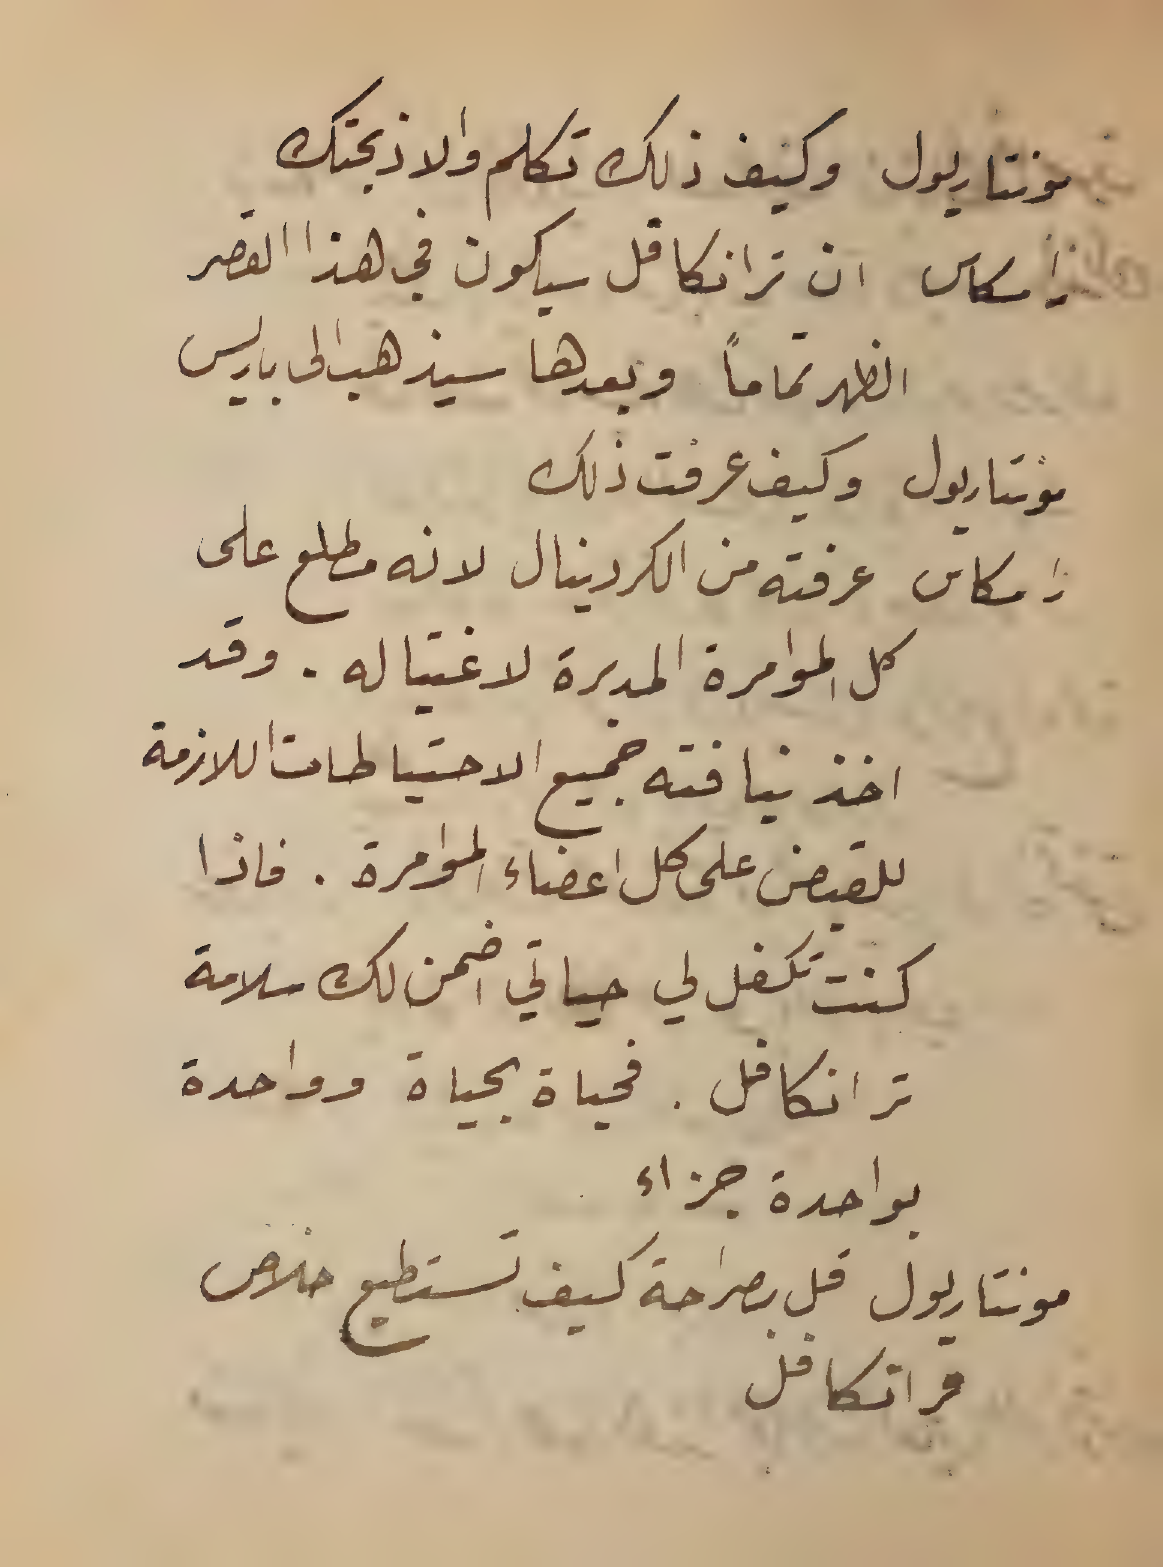 مونتاريول وكيف ذلك تكلم والا ذبحتك
زامسكاس ان ترانكافل سيكون في هذا القصر
الظهر تماماً وبعدها سيذهب الى باريس
مونتاريول وكيف عرفت ذلك
زامسكاس عرفته من الكردينال لانه مطلع على
كل الموامرة المدبرة لاغتياله . وقد
اخذ نيافته جميع الاحتياطات اللازمة
للقبض على كل اعضاء الموامرة . فاذا
كنت تكفل لي حياتي اضمن لك سلامة
ترانكافل . فحياة بحياة وواحدة
بواحدة جزاء
مونتاريول قل بصراحة كيف تستطيع خلاص
ترانكافل